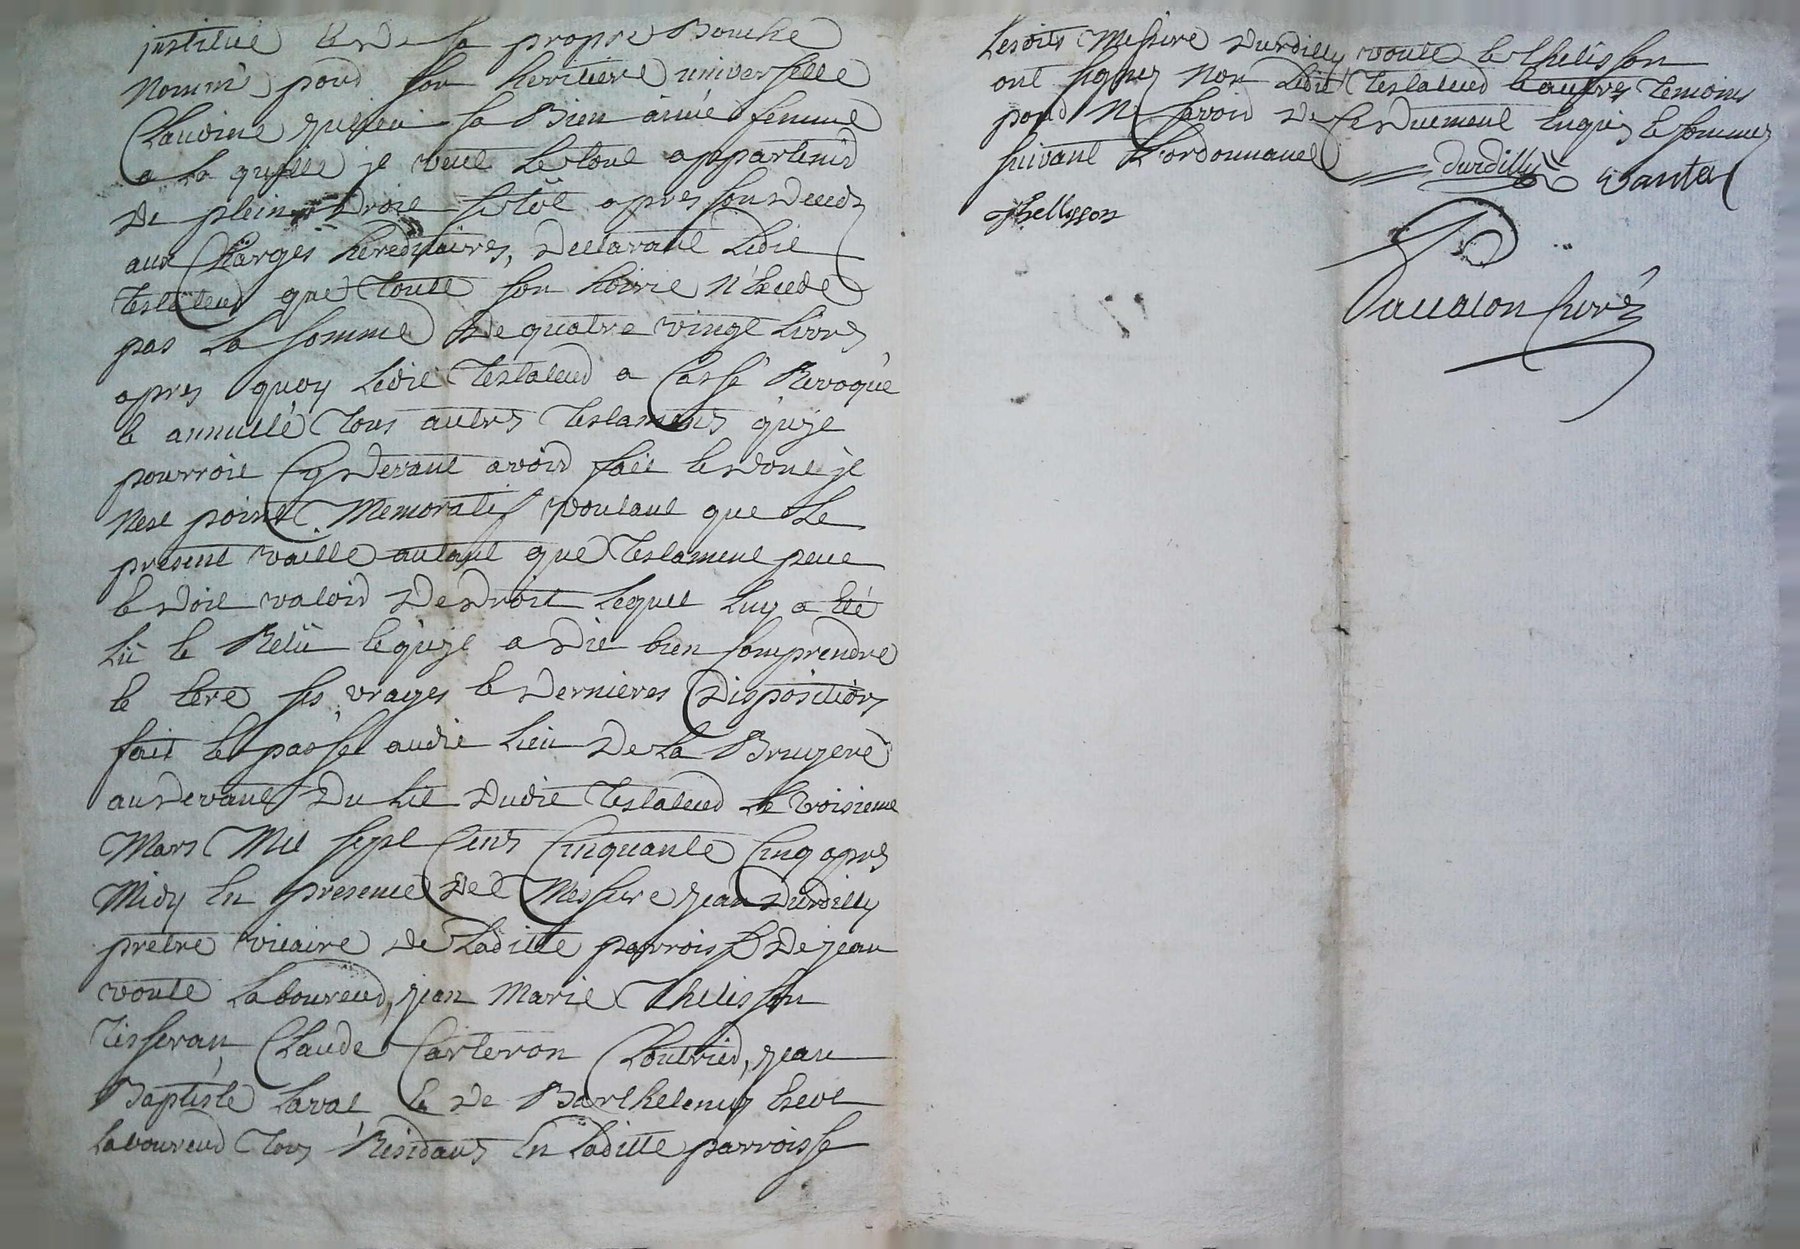 justitué et de sa propre Bouche
nommé pour son heritiere universelle
Claudine jullien sa Bien aimée femme
a la quelle je veut le tout appartenir
de plein Droit sitôt apres son deceds
aux Charges hereditaires, declarant ledit
testateur que toute son hoirie n'excede
pas la somme de quatre vingt livres
apres quoy ledit testateur a Cassé Revoqué
et annullé tous autres testamens qu'jl
pourroit Cy devant avoir fait et dont jl
nest point Memoratif voulant que le
present vaille autant que testament peut
et doit valoir de droit lequel luy a été
lü et Relü et qu'jl a dit bien Comprendre
et être ses vrayes et dernieres Dispositions
fait et passé audit lieu de la Bruyere
au devant du lit dudit testateur le troisieme
Mars Mil sept Cent Cinquante Cinq apres
Midy en presence de Messire jean Durdilly
prêtre vicaire de laditte parroisse de jean
voute laboureur, jean Marie Thelisson
tisseran, Claude Carteron Cloutrier, jean
Baptiste laval et de Barthelemy
laboureur tous Residants en laditte parroisse
lesdits Messire Durdilly voute et thelisson
ont signez non ledit testateur et autres temoins
pour ne savoir de ce duement enquis et sommez
suivant l'ordonnance Durdilly vante
thellisson
Curé